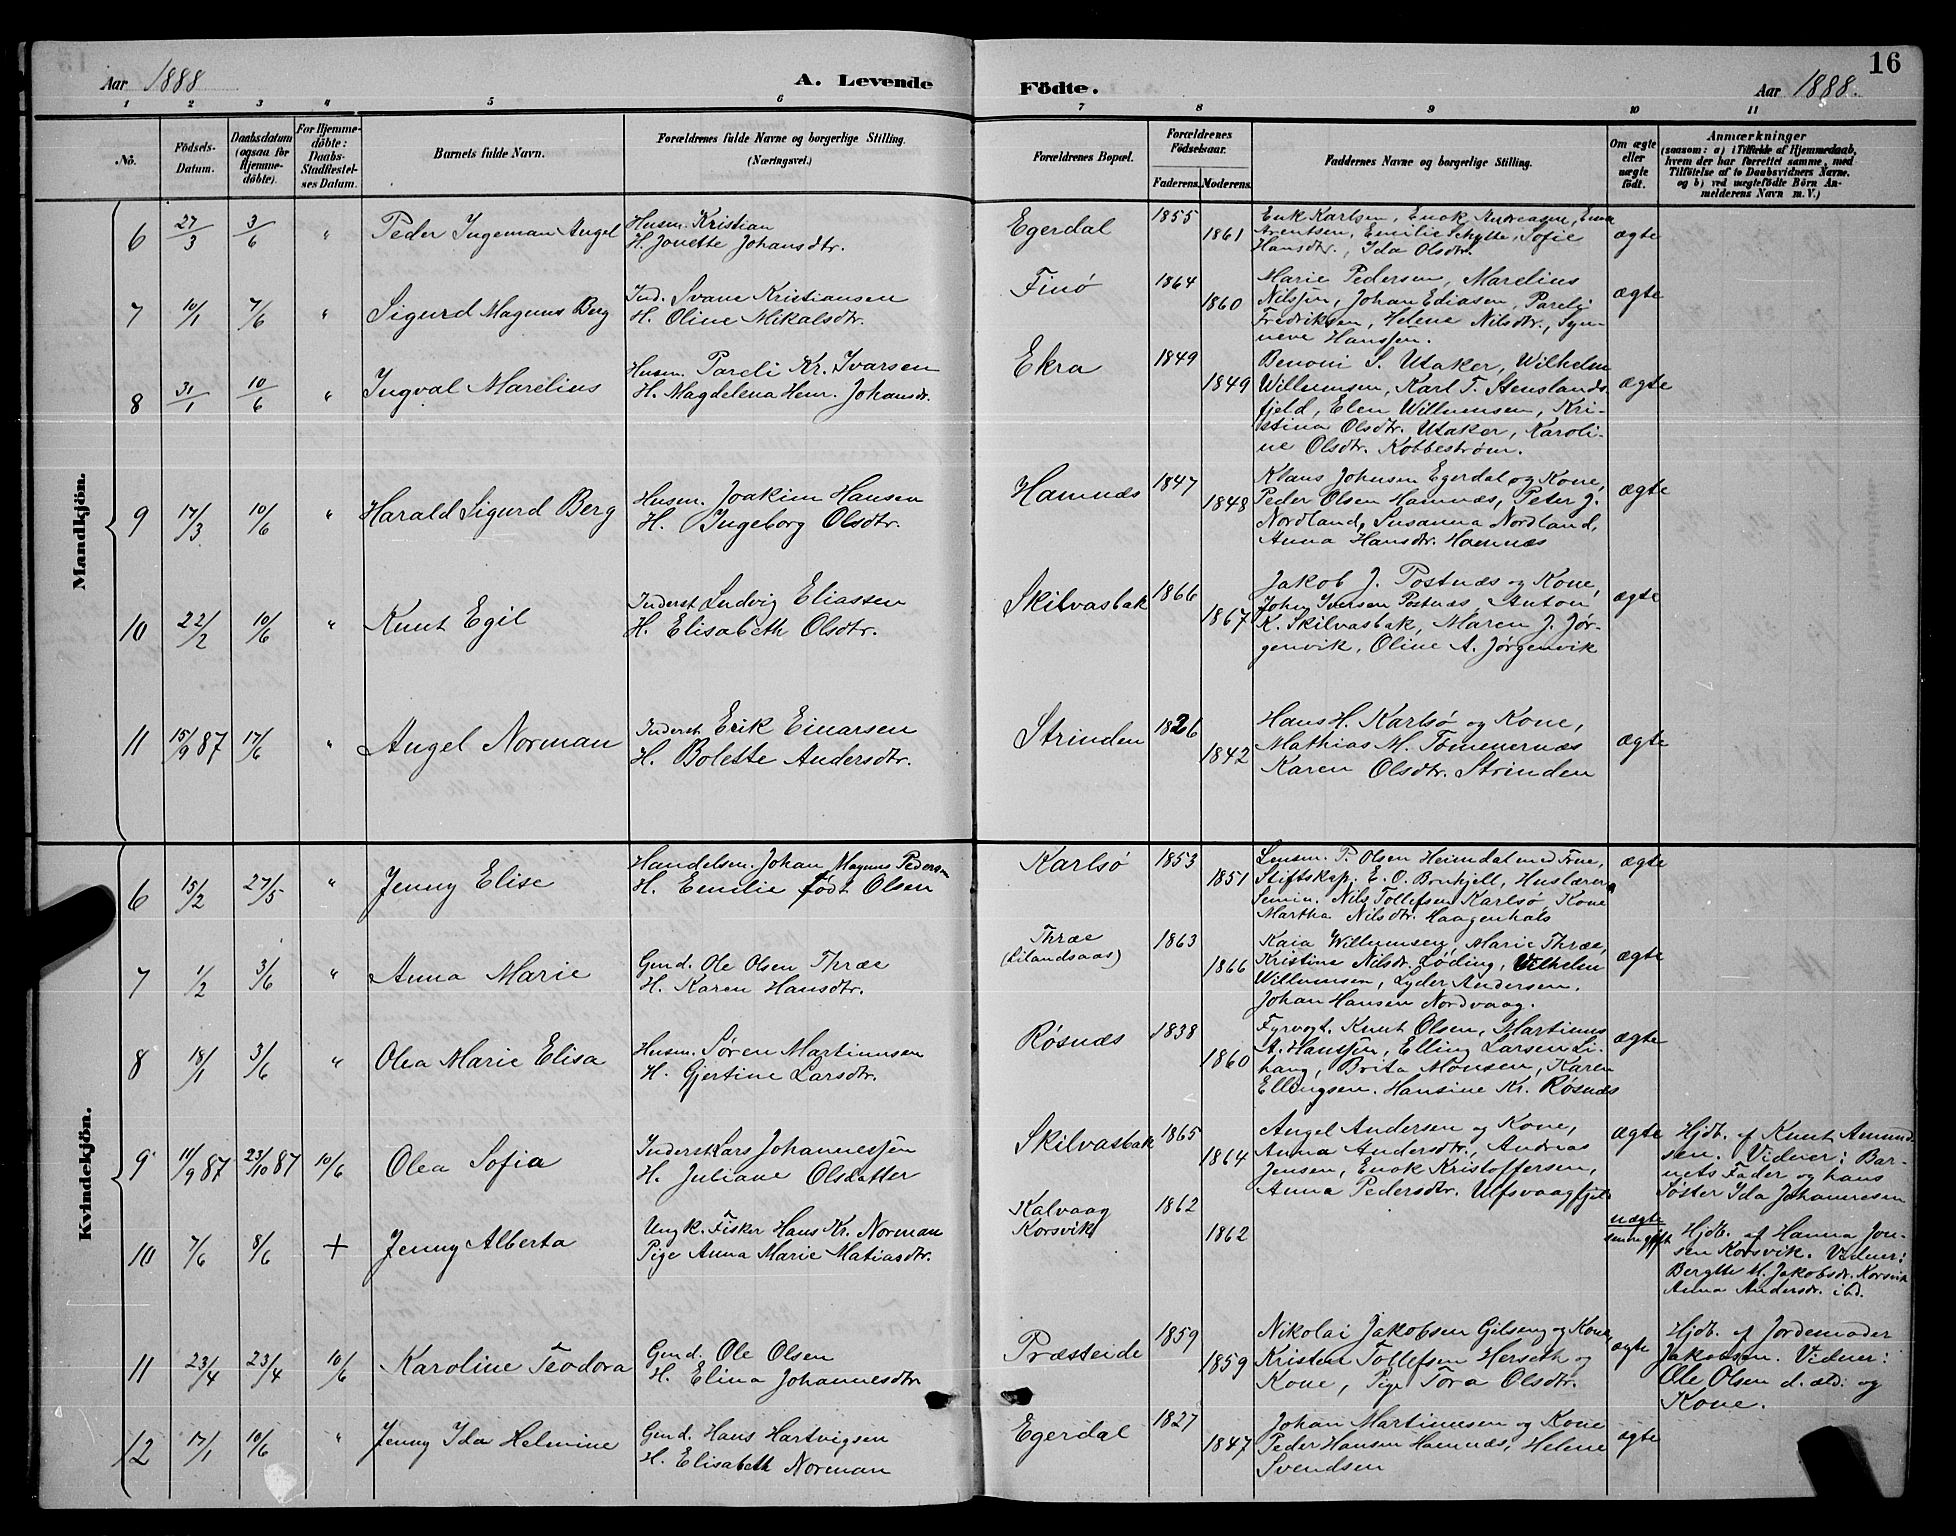 16
Aar 1888
A. Levende
Födte.
Aar 1888.
1 2 3 4 5 6 7 8 9 10 11
No.
Födsels-Datum.
Daabsdatum (ogsaa for Hjemme-döbte).
For Hjemme-döbte: Daabs-Stadfæstel-ses Datum.
Barnets fulde Navn.
Forældrenes fulde Navne og borgerlige Stilling.
(Næringsvei.)
Forældrenes Bopæl.
Forældrenes Födselsaar.
Faderens. Moderens.
Faddernes Navne og borgerlige Stilling.
Om ægte eller uægte födt.
Anmærkninger
(saasom: a) i Tilfælde af Hjemmedaab,
hvem der har forrettet samme, med
Tilföielse af to Daabsvidners Navne.
og b) ved uægtefödte Börn An-
melderens Navn m. V.)
Mandkjön.
6 27/3 3/6 " Peder Ingeman Angel
Husm. Kristian
H. Jonette Johansdtr.
Egerdal 1855 1861
Erik Karlsen, Enok Andreasen,
Arentsen, Emilie Schytte, Sofie
Hansdtr., Ida Olsdtr.
ægte
7 10/1 7/6 " Sigurd Magnus Berg
Ind. Svane Kristiansen
H. Oline Mikalsdtr.
Finö 1864 1860
Marie Pedersen, Marelius
Nilssen, Johan Ediasen, Pareli
Fredriksen, Helene Nilsdtr., Syn-
neve Hanssen.
ægte
8 31/1 10/6 " Ingval Marelius
Husm. Pareli Kr. Ivarsen
H. Magdelena Henr. Johansdr.
Ekra 1849 1849
Benoni S. Utaker, Wilhelm
Willumsen, Karl T. Stenslands-
fjeld, Elen Willumsen, Kri-
stina Olsdtr. Utaker, Karoli-
ne Olsdtr. Kobbeström.
ægte
9 17/3 10/6 " Harald Sigurd Berg
Husm. Joakim Hansen
H. Ingeborg Olsdtr.
Hamnæs 1847 1848
Klaus Johnsen Egerdal og Kone,
Peder Olsen Hamnæs, Peter J.
Nordland, Susanna Nordland,
Anna Hansdtr. Hamnæs
ægte
10 22/2 10/6 " Knut Egil
Inderst Ludvig Eliassen
H. Elisabeth Olsdtr.
Skilvasbak 1866 1867
Jakob J. Postnæs og Kone,
John Iversen Postnæs, Anton
K. Skilvasbak, Maren J. Jør-
genvik, Oline A. Jørgenvik
ægte
11 15/9 87 17/6 " Angel Norman
Inderst Erik Einarsen
H. Bolette Andersdtr.
Strinden 1826 1842
Hans H. Karlsø og Kone,
Mathias M. Tømmernæs
Karen Olsdtr. Strinden
ægte
Kvindekjön.
6 15/2 27/5 " Jenny Elise
Handelsm. Johan Magnus Pedersen
H. Emilie født Olsen
Karlsø 1853 1851
Lensm. P. Olsen Heimdal med Frue,
Stiftskap. E. O. Huslærer
Semin. Nils Tollefsen Karlsø, Kone
Martha Nilsdtr. Haagenhals
ægte
7 1/2 3/6 " Anna Marie
Gmd. Ole Olsen Thræe
H. Karen Hansdtr.
Thræe
(Lilandsaas)
1863 1866
Kaia Willumsen, Marie Thræe,
Kristine Nilsdr. Løding, Vilhelm
Willumsen, Lyder Andersen,
Johan Hansen Nordvaag.
ægte
8 18/1 3/6 " Olea Marie Elisa
Husm. Søren Martinusen
H. Gjertine Larsdtr.
Røsnæs 1838 1860
Fyrvogt. Knut Olsen, Martinus
A. Hanssen, Elling Larsen Li-
hang, Brita Monsen, Karen
Ellingsen. Hansine Kr. Røsnæs
ægte
9 11/9 87 23/10 87 10/6 Olea Sofia
Inderst Lars Johannessen
H. Juliane Olsdatter
Skilvasbak 1865 1864
Angel Andersen og Kone,
Anna Andersdtr., Andreas
Jensen, Enok Kristoffersen,
Anna Pedersdtr. Ulfsvaagfjeld
ægte
Hjdb. af Knut Amund-
sen. Vidner: Bar-
nets Fader og hans
Søster Ida Johannesen
10 7/6 8/6 + Jenny Alberta
Ungk. Fisker Hans Kr. Norman
Pige Anna Marie Matiasdtr.
Kalvaag
Korsvik
1862 1862
uægte
Hjdb. af Hanna Jon-
sen Korsvik. Vidner:
Bergtte M. Jakobsdr. Korsvik
Anna Andersdr. ibd.
11 23/4 23/4 10/6 Karoline Teodora
Gmd. Ole Olsen
H. Elina Johannesdtr
Præsteide 1859 1859
Nikolai Jakobsen Gilseng og Kone
Kristen Tollefsen Herseth og
Kone, Pige Tora Olsdtr.
ægte
Hjdb. af Jordemoder
Jakobsen. Vidner:
Ole Olsen d. æld: og
Kone.
12 17/1 10/6 " Jenny Ida Helmine
Gmd. Hans Hartvigsen
H. Elisabeth Norman
Egerdal 1827 1847
Johan Martinusen og Kone
Peder Hansen Hamnæs, Helene
Svendsen
ægte